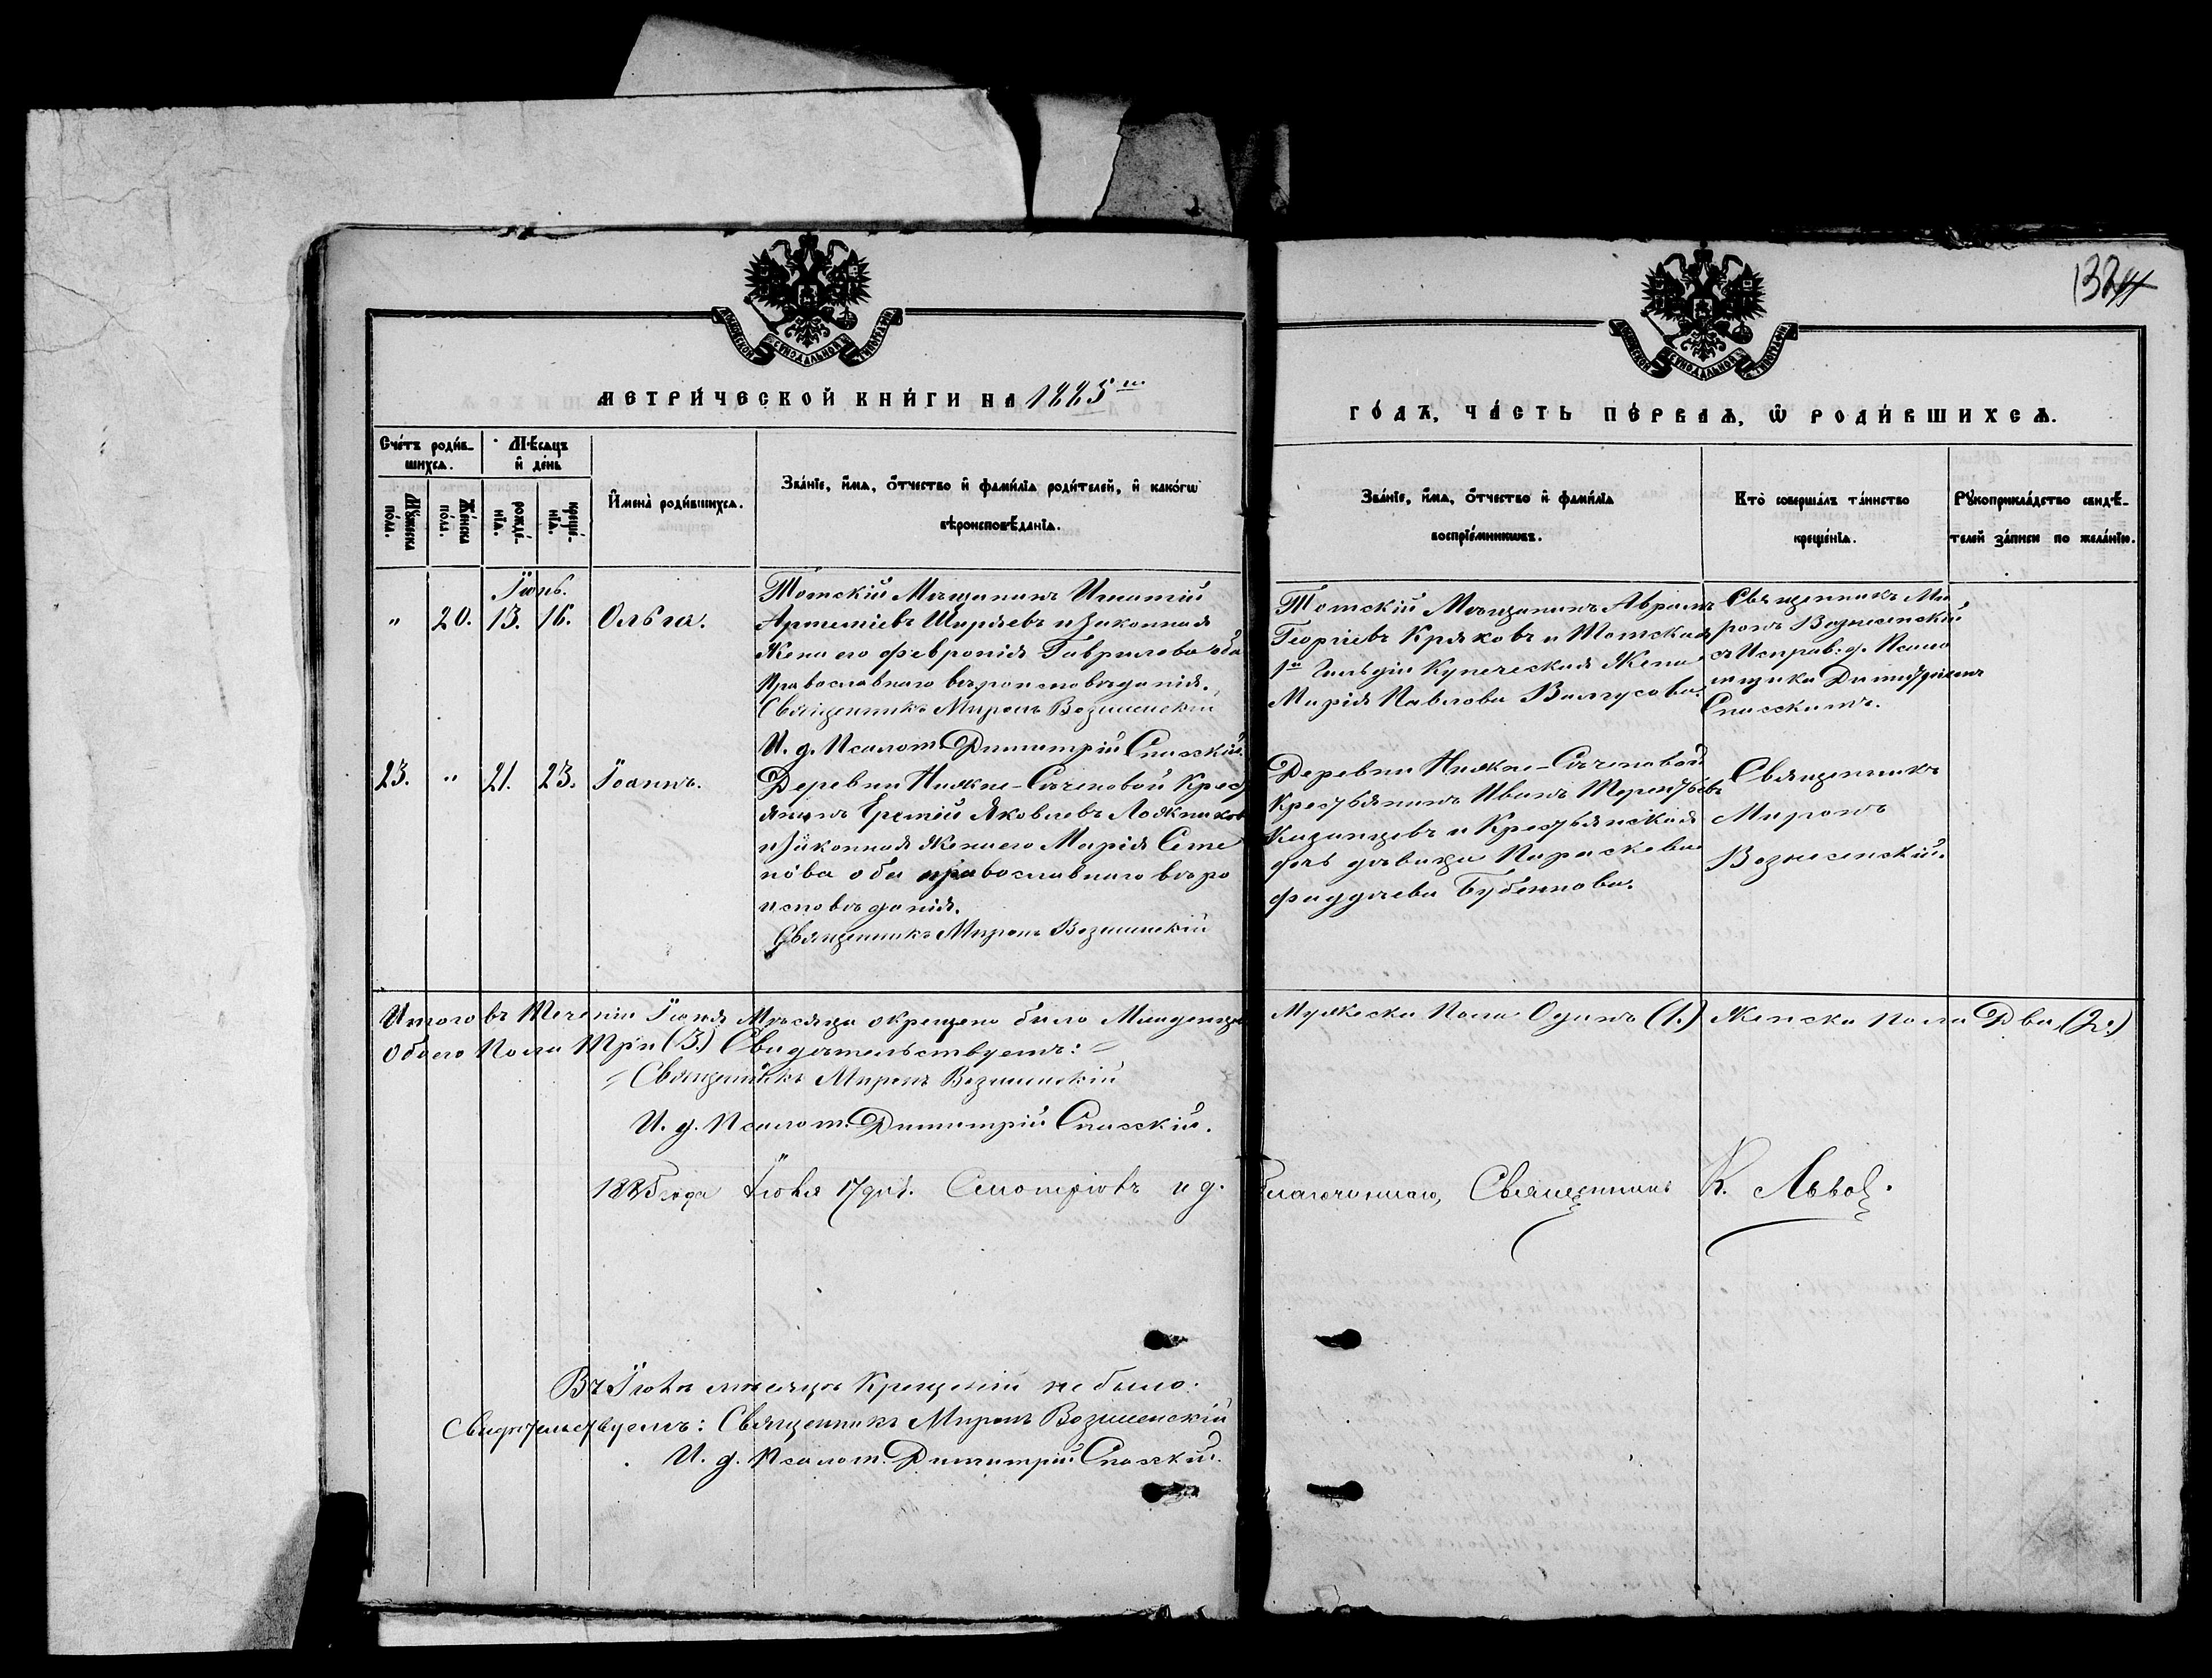 132
МОСКОВСКОЙ СѴНОДАЛЬНОЙ ТИПОГРАФІИ
МОСКОВСКОЙ СѴНОДАЛЬНОЙ ТИПОГРАФІИ
МЕТРИ́ЧЕСКОЙ КНИ́ГИ НА 1885 го
ГО́ДА, ЧА́СТЬ ПЕ́РВАЯ, Ѡ РОДИ́ВШИХСЯ.
Сче́тъ роди́в-
шихся.
Мѣ́сяцъ
и де́нь
Му́жеска
по́ла.
Же́нска
по́ла.
рожде́-
нія.
креще́-
нія.
Имена̀ роди́вшихся.
Зва́ніе, и́мя, о́тчество и фами́лія роди́телей, и како́гѡ
вѣроисповѣ́данія.
Зва́ніе, и́мя, о́тчество и фами́лія
воспріе́мниковъ.
Кто̀ соверша́лъ та́инство
креще́нія.
Рукоприкла́дство свидѣ́-
телей за́писи по жела́нію.
Іюнь.
" 20. 13. 16. Ольга.
Томскій Мѣщанинъ Игнатій
Артеміевъ Ширяевъ и законная
Жена его Февронія Гаврилова оба
Православнаго вѣроисповѣданія.
Священникъ Миронъ Вознесенскій
И. д. Псалом. Димитрій Спасскій.
Томскій Мѣщанинъ Аврамъ
Георгіевъ Кряковъ и Томская
1й Гильдіи Купеческая Жена
Марія Павлова
Священникъ Ми
ронъ Вознесенскій
съ Исправ: д. Псало
мщика Димитріемъ
Спасскимъ.
23. " 21. 23. Іоаннъ.
Деревни Нижне-Сѣченовой Крест
янинъ Еремѣй Яковлевъ Ложников
и законная Жена его Марія Семе
нова оба православнаго вѣро
исповѣданія.
Священникъ Миронъ Вознесенскій
Деревни Нижне-Сѣченовой
Крестьянинъ Иванъ Терентьевъ
Казанцевъ и Крестьянская
дочь дѣвица Параскева
Фаддѣева Бубеннова.
Священникъ
Миронъ
Вознесенскій.
Итого въ Теченіи Іюня Мѣсяца окрещено было Младенцевъ Мужеска Пола Одинъ (1.) Женска пола Два (2.)
Обоего Пола Три (3.) Свидѣтельствуемъ:
Священникъ Миронъ Вознесенскій
И. д. Псалом. Димитрій Спасскій.
1885 года Іюля 17 дня. Смотрѣлъ и д. благочиннаго, Священникъ К. Львов.
Въ Іюлѣ мѣсяцѣ Крещеній не было.
Свидѣтельствуемъ: Священникъ Миронъ Вознесенскій
И. д. Псалом. Димитрій Спасскій.